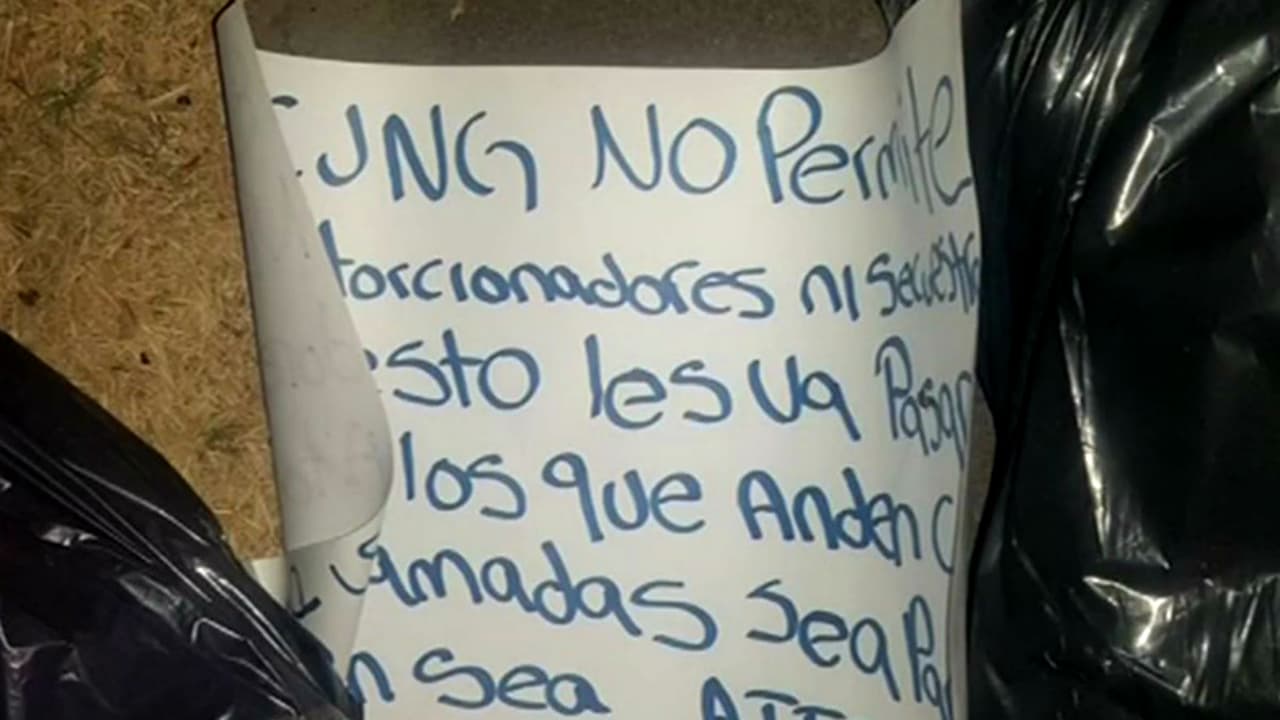 CJNG NO Permite
torcionadores ni secuestr
esto les va Pasar
los que Anden
llamadas sea Pa
n sea ATT